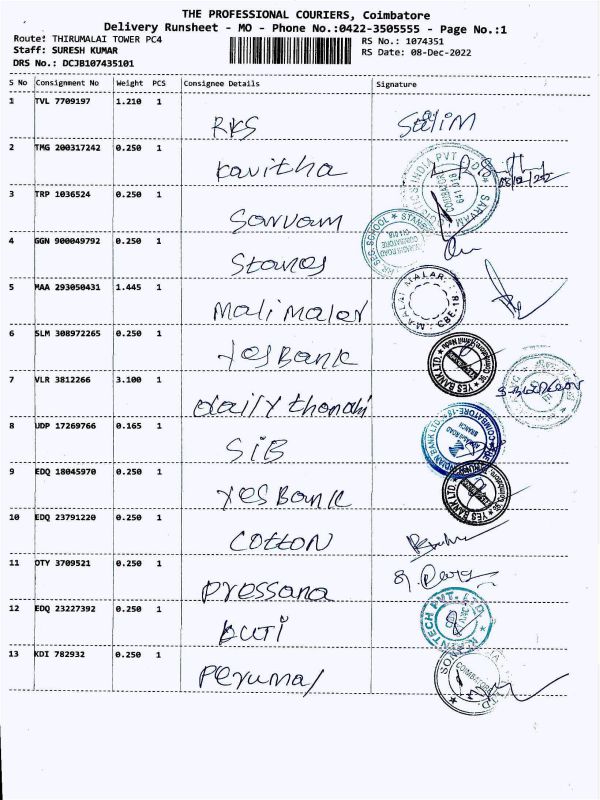 THE PROFESSIONAL COURIERS, Coimbatore
Delivery Runsheet - MO - Phone No.:0422-3505555 - Page No.:1
Route: THIRUMALAI TOWER PC4
RS No.: 1074351
Staff: SURESH KUMAR
RS Date: 08-Dec-2022
DRS No.: DCJB107435101
S No Consignment No Weight PCS Consignee Details Signature
1 TVL 7709197 1.210 1
RKS Salim
2 TMG 200317242 0.250 1
Kavitha
3 TRP 1036524 0.250 1
Sarvam
4 GGN 900049792 0.250 1
Stanes
5 MAA 293050431 1.445 1
Malimaler
6 SLM 308972265 0.250 1
Yes Bank
YES BANK LTD.
7 VLR 3812266 3.100 1
daily thanthi
8 UDP 17269766 0.165 1
SiB
9 EDQ 18045970 0.250 1
Yes Bank
YES BANK LTD.
10 EDQ 23791220 0.250 1
Cotton
11 OTY 3709521 0.250 1
Pressana
12 EDQ 23227392 0.250 1
13 KDI 782932 0.250 1
Perumal